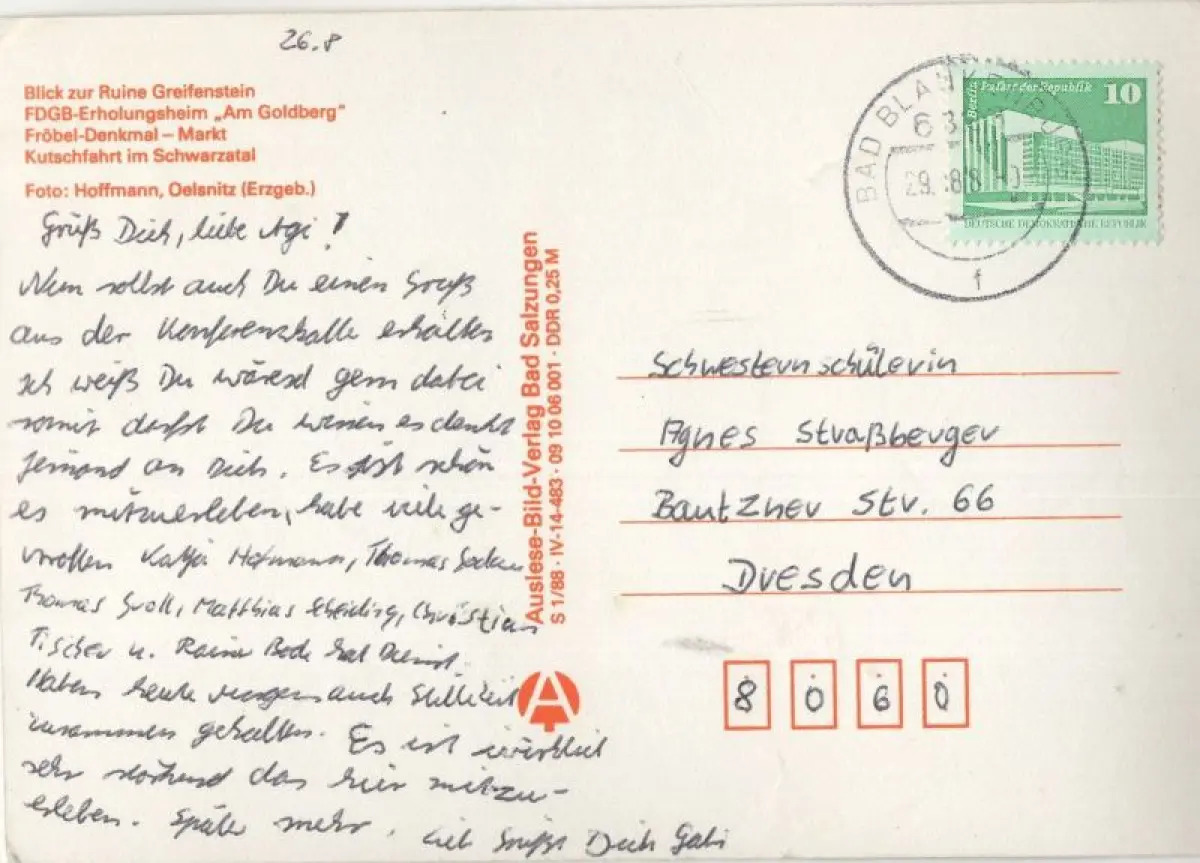 26.8
Blick zur Ruine Greifenstein
FDGB-Erholungsheim „Am Goldberg"
Fröbel-Denkmal – Markt
Kutschfahrt im Schwarzatal
Foto: Hoffmann, Oelsnitz (Erzgeb.)
Grüß Dich, liebe Agi!
Nun sollst auch Du einen Gruß
aus der Konferenzhalle erhalten
ich weiß Du wärest gern dabei
somit darfst Du wissen es denkt
jemand an Dich. Es ist schön
es mitzuerleben, habe viele ge-
troffen Katja Hofmann, Thomas
Thomas Groll, Matthias Scheiding, Christian
Tischer u. Rainer Bode hat Dienst.
Haben heute morgen auch Stillezeit
zusammen gehalten. Es ist wirklich
sehr stärkend das hier mitzu-
erleben. Später mehr. Lieb grüßt Dich Gabi
Auslese-Bild-Verlag Bad Salzungen
S 1/88 · IV-14-483 · 09 10 06 001 · DDR 0,25 M
BAD BLANKENBURG
29.
f
Berlin Palast der Republik 10
DEUTSCHE DEMOKRATISCHE REPUBLIK
Schwesternschülerin
Agnes Straßberger
Bautzner Str. 66
Dresden
8060